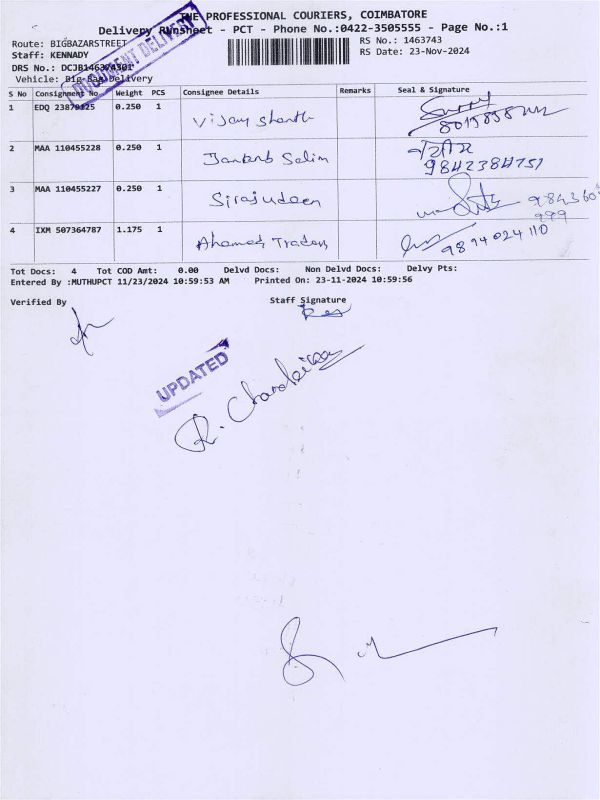 THE PROFESSIONAL COURIERS, COIMBATORE
Delivery Runsheet - PCT - Phone No.:0422-3505555 - Page No.:1
Route: BIGBAZARSTREET
RS No.: 1463743
Staff: KENNADY
RS Date: 23-Nov-2024
DRS No.: DCJB146374301
Vehicle: Big Bag Delivery
DOCUMENT DELIVERY
S No Consignment No Weight PCS Consignee Details Remarks Seal & Signature
1 EDQ 23879125 0.250 1 Vijay Shanth
2 MAA 110455228 0.250 1 Salim 9842384751
3 MAA 110455227 0.250 1 Sirajudeen 984360 999
4 IXM 507364787 1.175 1 Ahamed Traders 9894024110
Tot Docs: 4 Tot COD Amt: 0.00 Delvd Docs: Non Delvd Docs: Delvy Pts:
Entered By :MUTHUPCT 11/23/2024 10:59:53 AM Printed On: 23-11-2024 10:59:56
Verified By Staff Signature
UPDATED